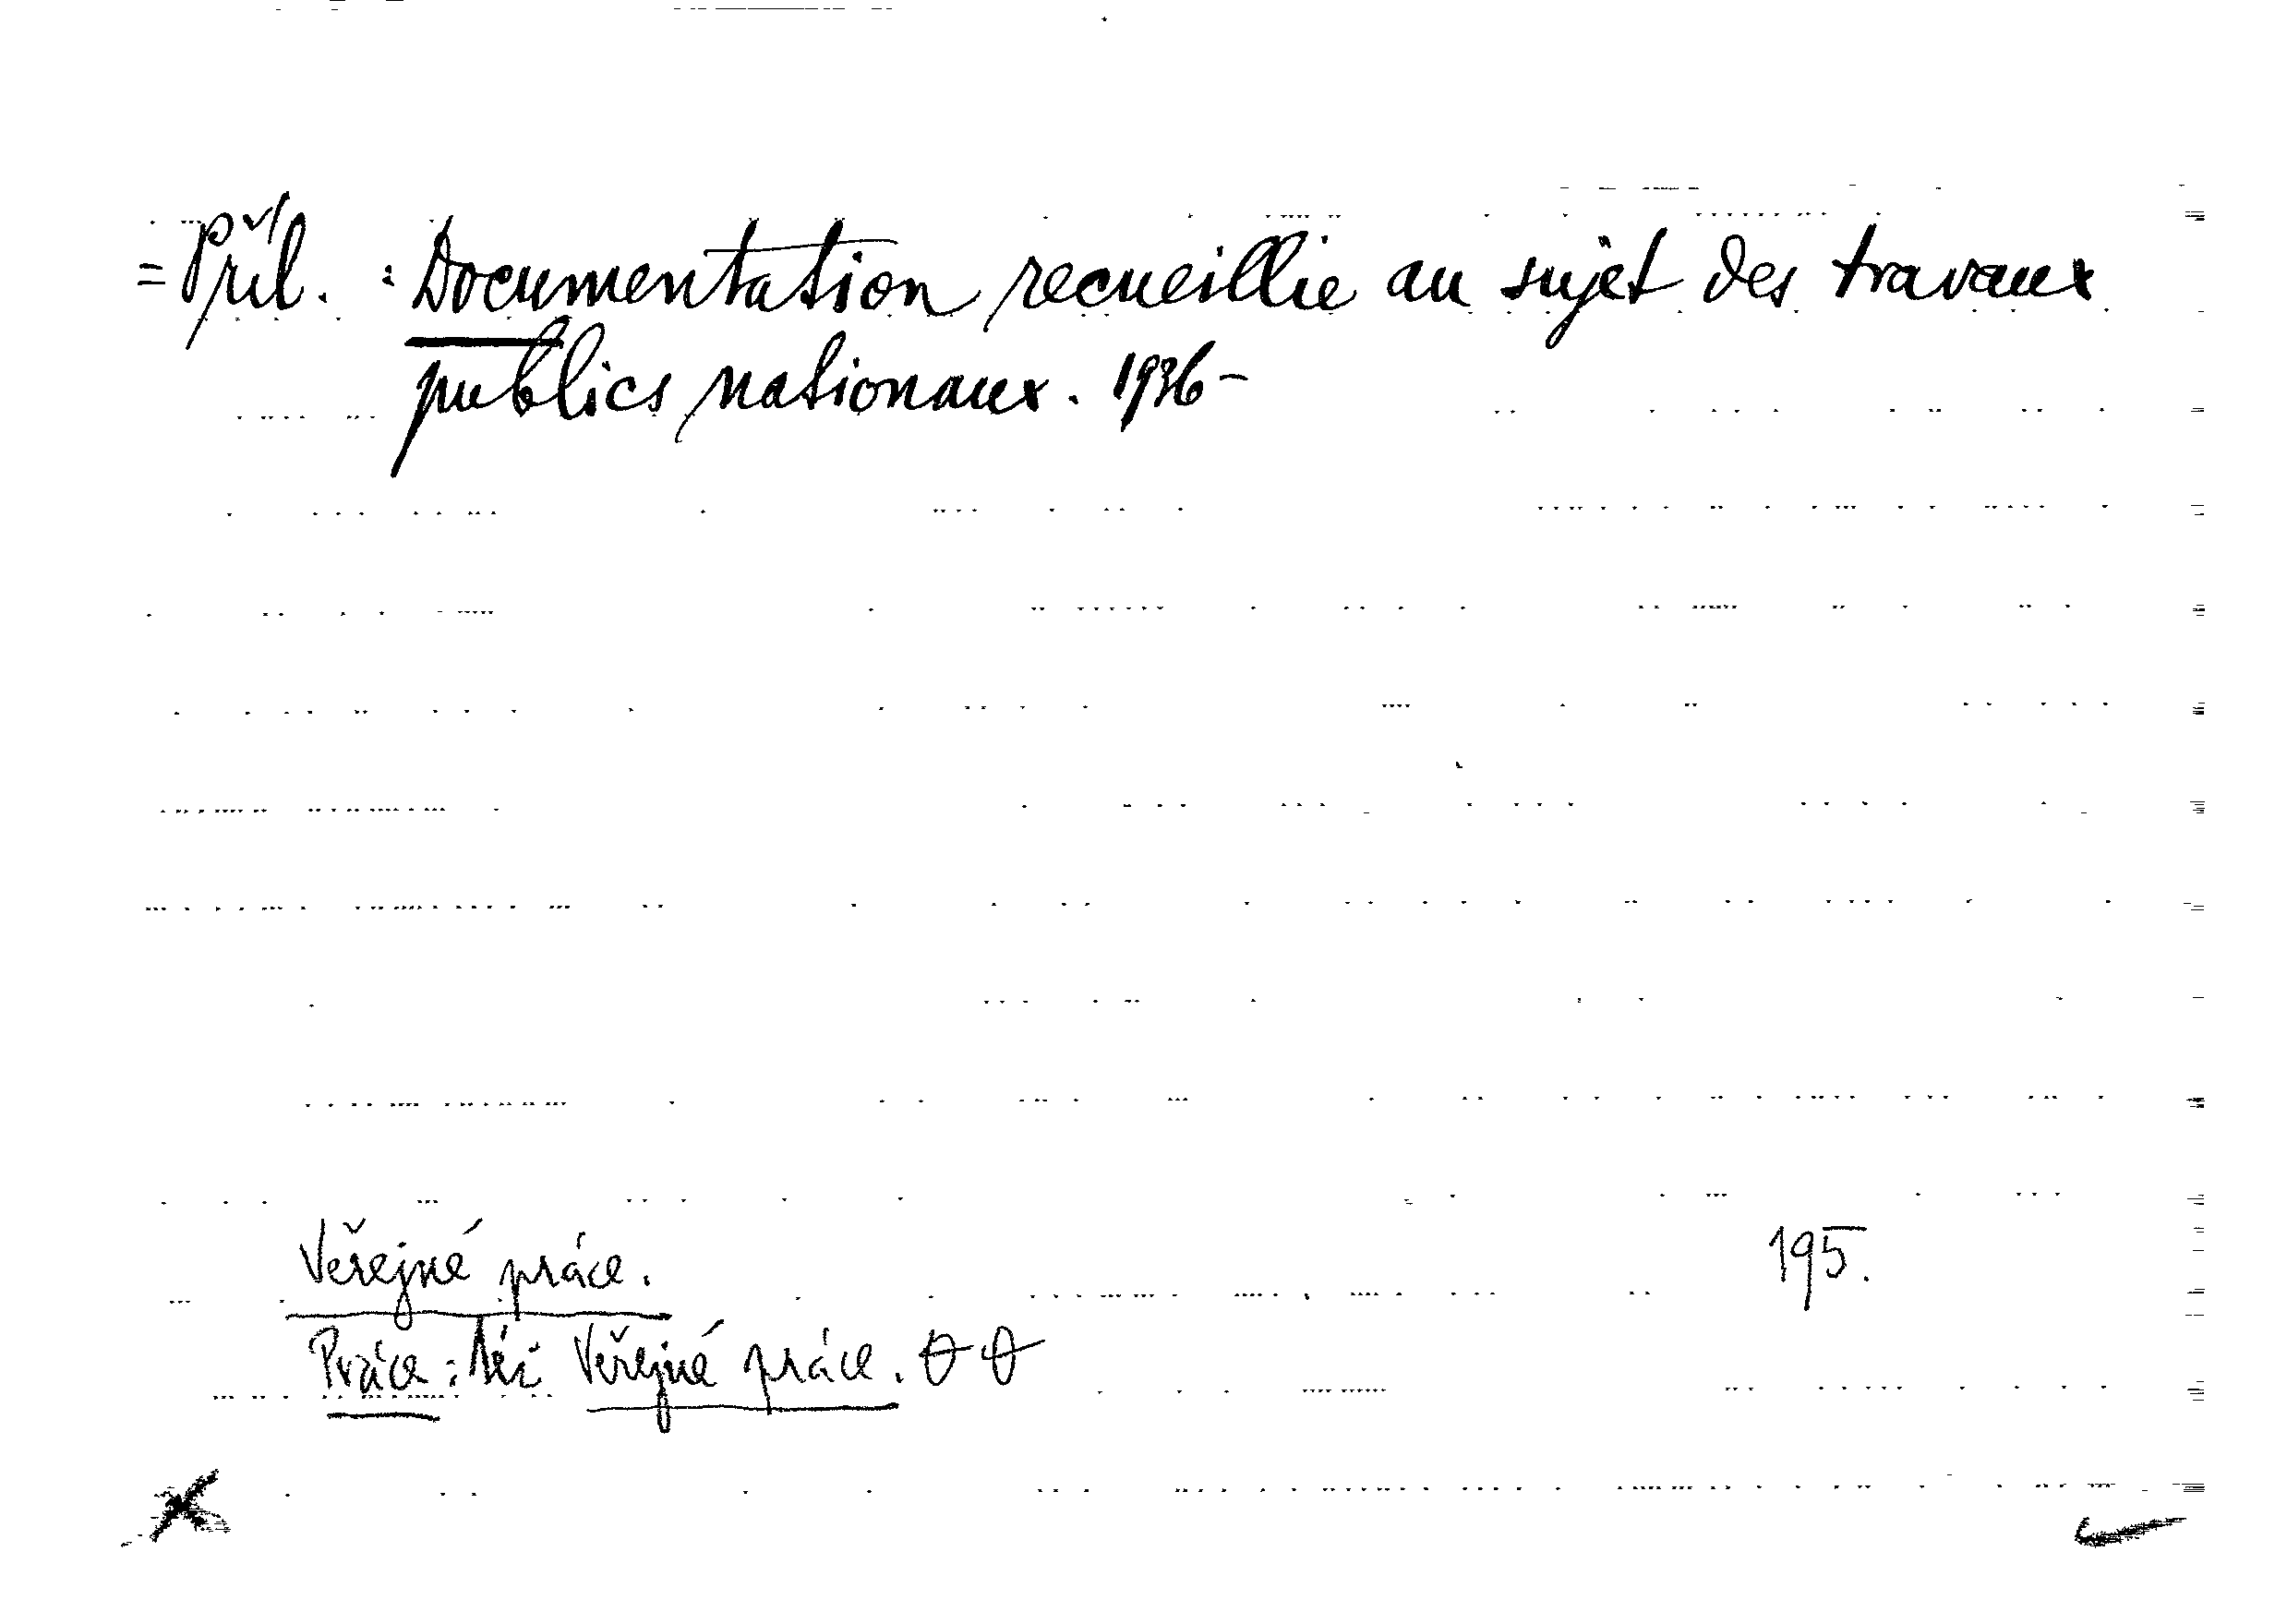 =Příl. : Documentation recueillie au sujet des travaux
publics nationaux. 1936-
Veřejné práce.
195.
Práce: Viz Veřejné práce.